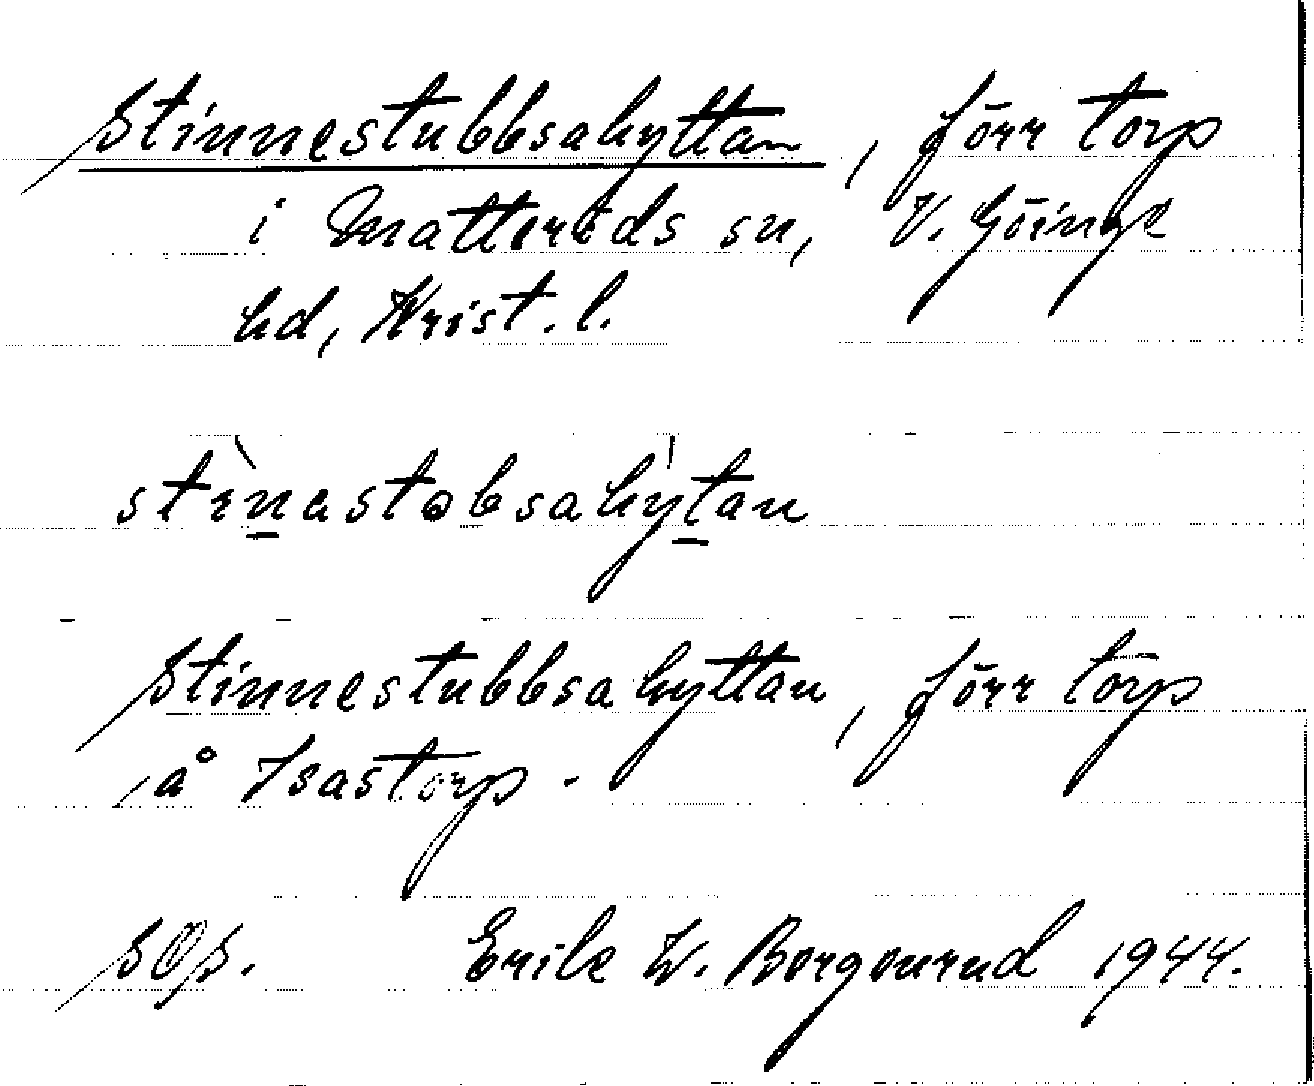 Stinnestubbsahyttan, förr torp
i Matteröds sn, V. Göinge
hd, Krist. l.
stìnastobsahýtan
Stinnestubbsahyttan, förr torp
å Isastorp.
SOS. Erik W. Borgourud 1944.